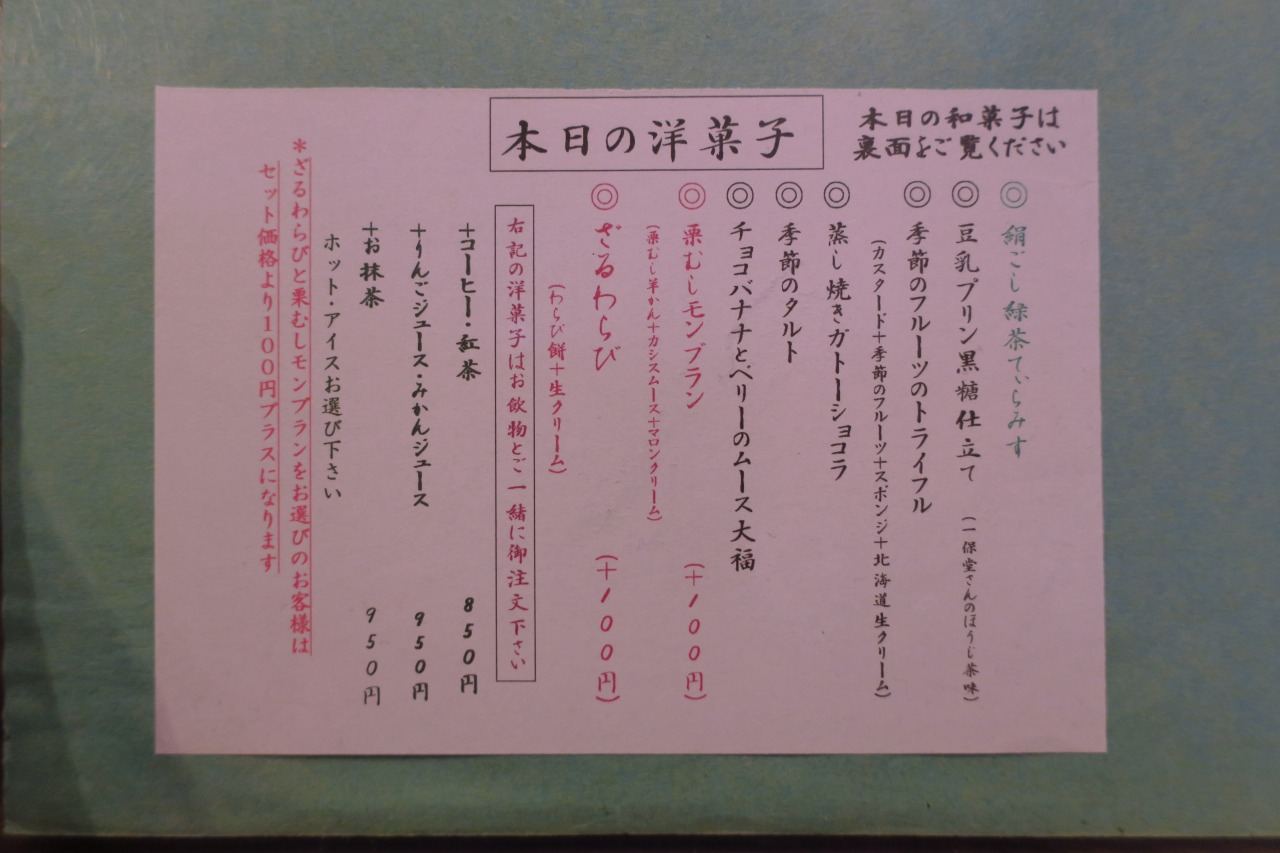 本日の和菓子は
裏面をご覧ください
本日の洋菓子
◎ 絹ごし緑茶てぃらみす
◎ 豆乳プリン黒糖仕立て (一保堂さんのほうじ茶味)
◎ 季節のフルーツのトライフル
(カスタード+季節のフルーツ+スポンジ+北海道生クリーム)
◎ 蒸し焼きガトーショコラ
◎ 季節のタルト
◎ チョコバナナとベリーのムース大福
◎ 栗むしモンブラン (+100円)
(栗むし羊かん+カシスムース+マロンクリーム)
◎ ざるわらび (+100円)
(わらび餅+生クリーム)
右記の洋菓子はお飲物とご一緒に御注文下さい
+コーヒー・紅茶 850円
+りんごジュース・みかんジュース 950円
+お抹茶 950円
ホット・アイスお選び下さい
*ざるわらびと栗むしモンブランをお選びのお客様は
セット価格より100円プラスになります